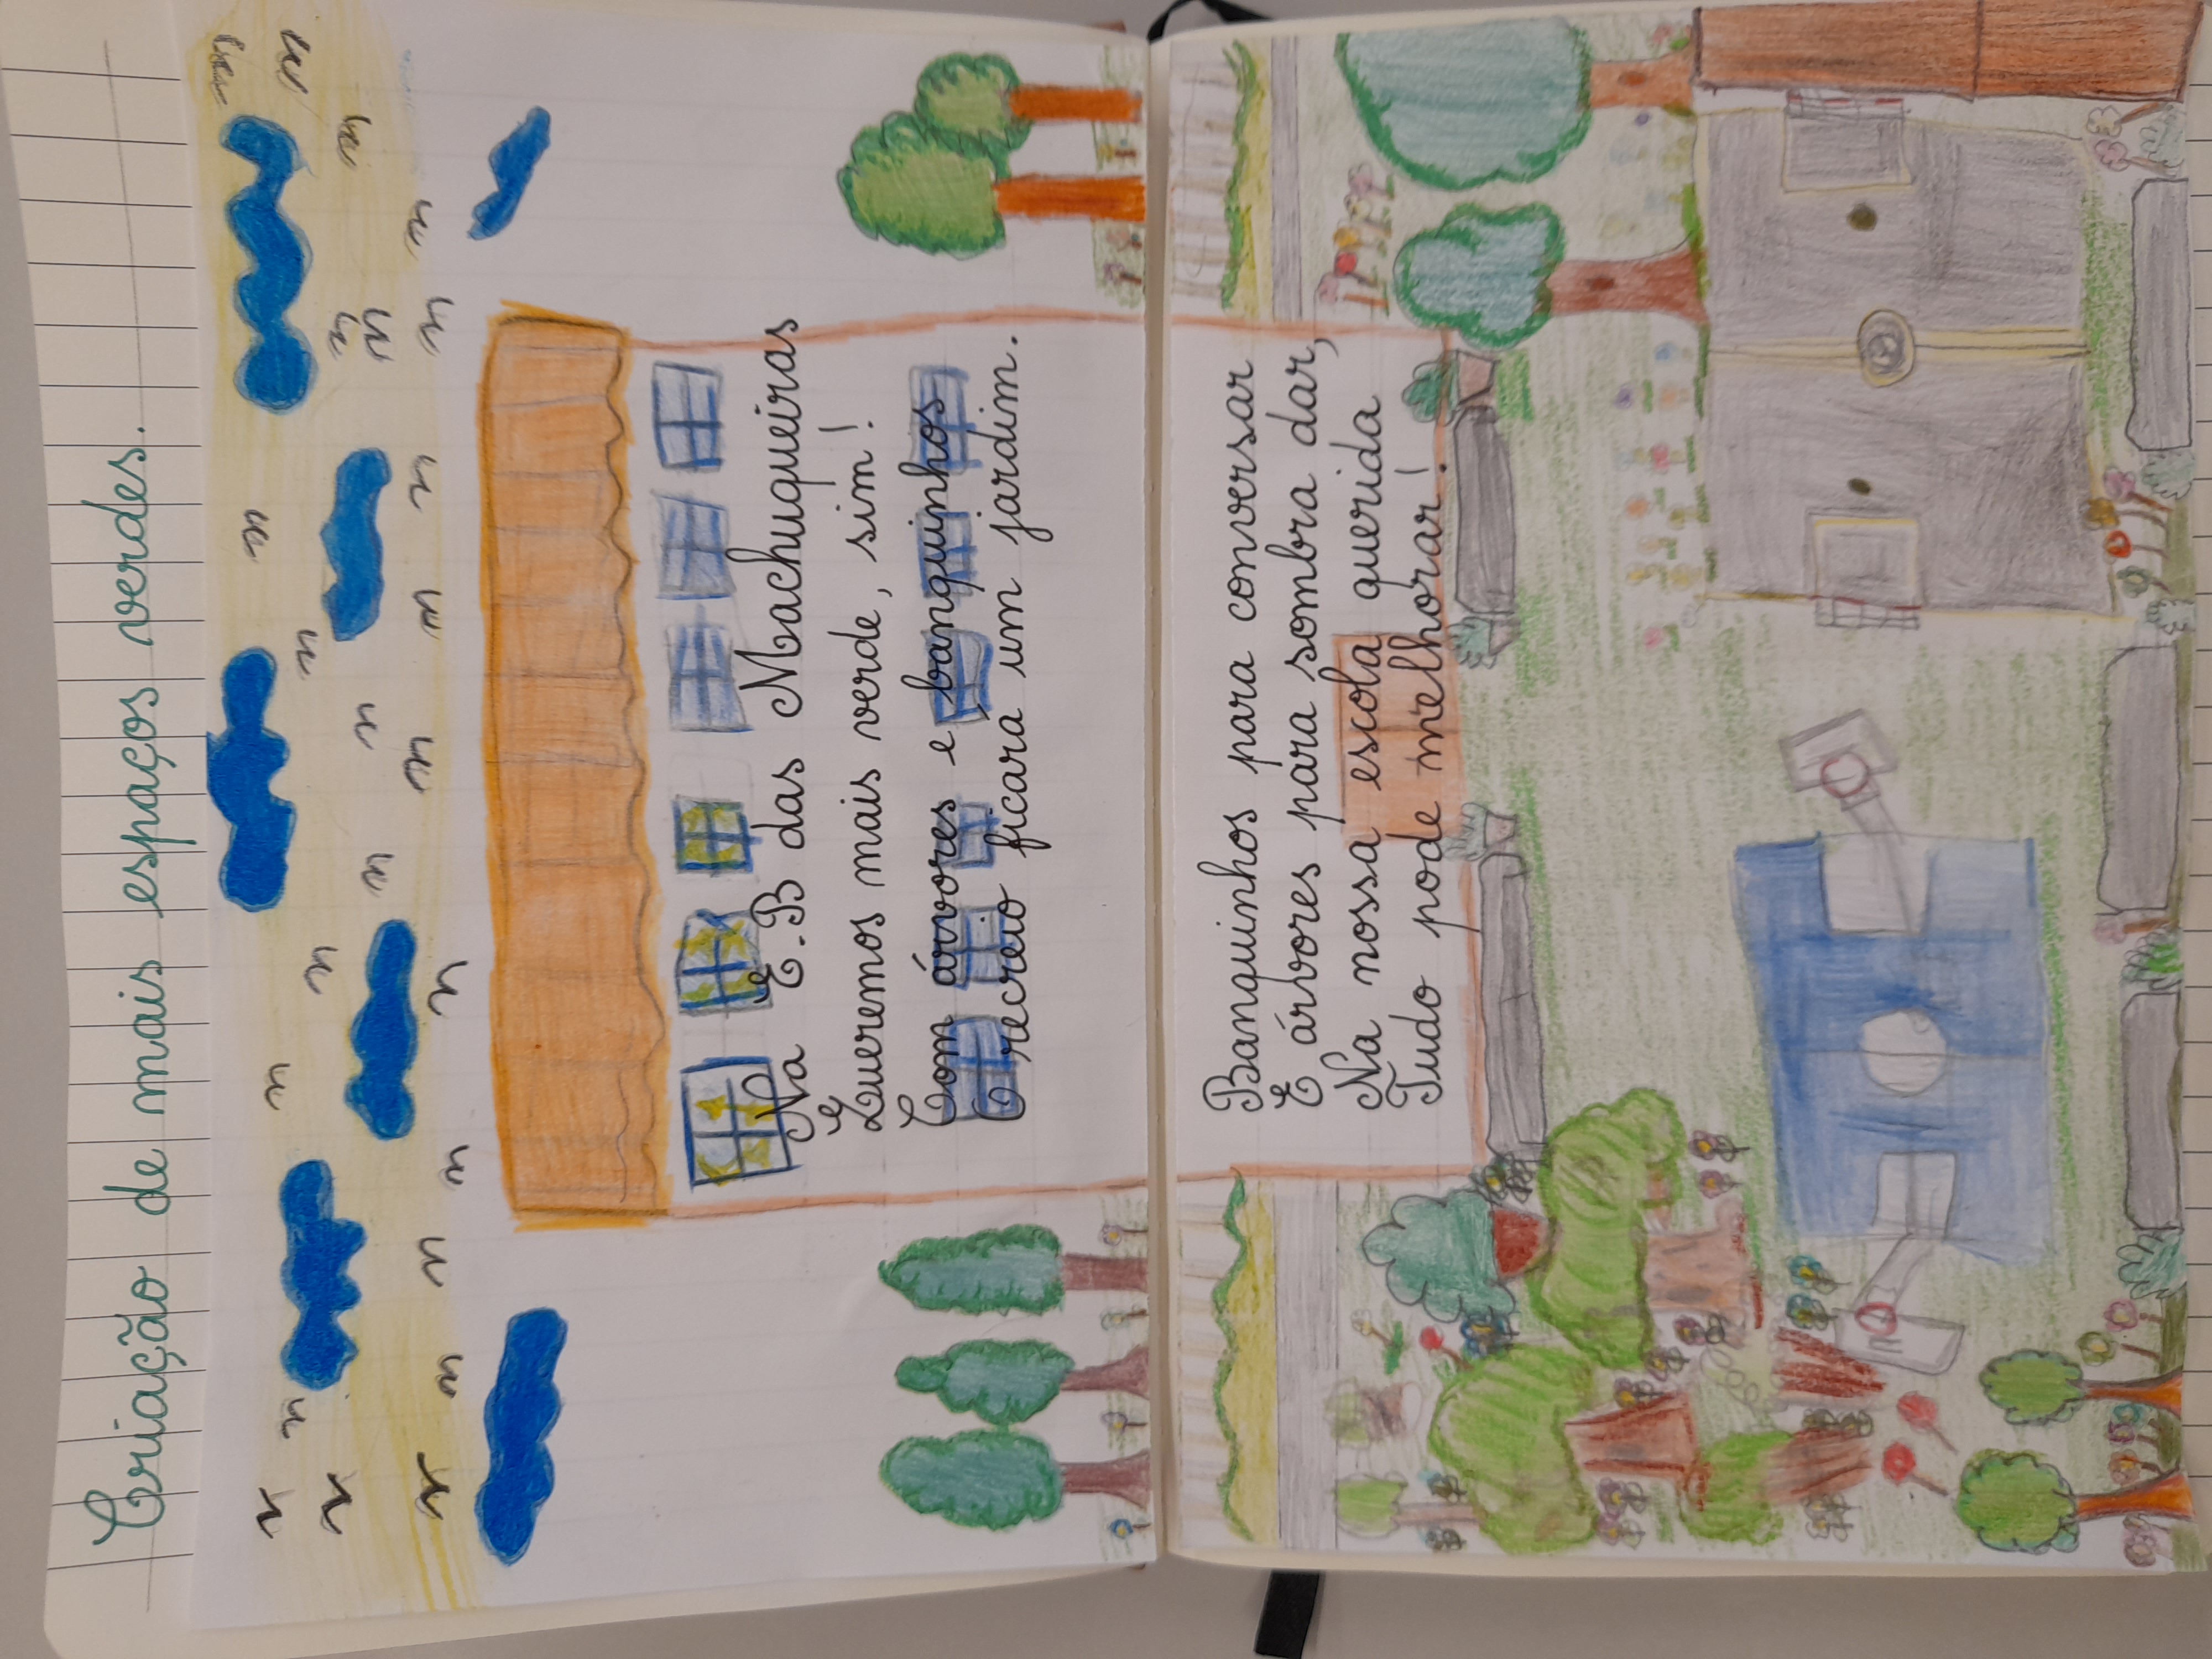 Criação de mais espaços verdes.
Na E.B das Machuqueiras
Queremos mais verde, sim!
Com árvores e banquinhos
O recreio ficara um jardim.
Banquinhos para conversar
E árvores para sombra dar,
Na nossa escola querida
Tudo pode melhorar!